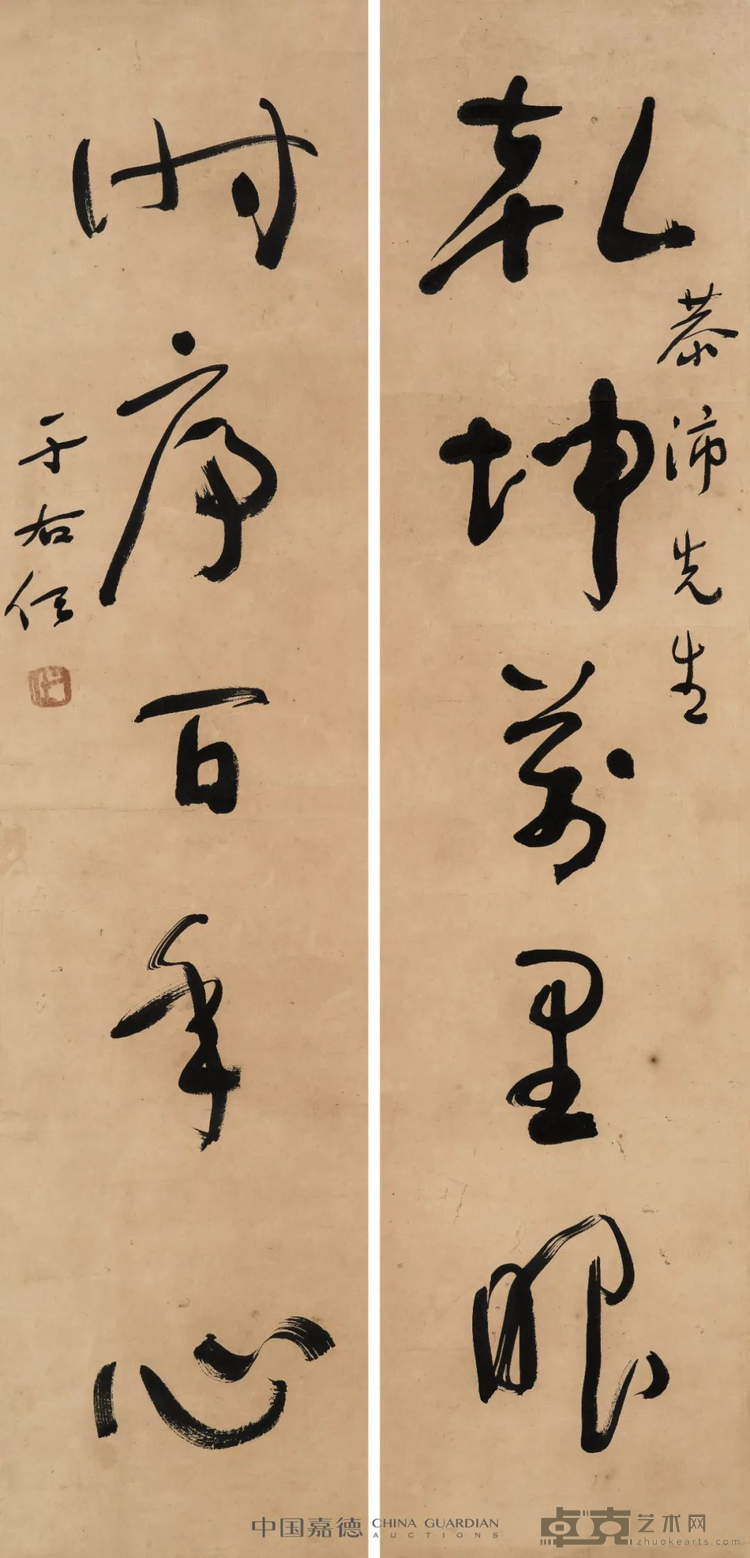 乾坤萬里眼
恭沛先生
时序百年心
于右任
中国嘉德 CHINA GUARDIAN
AUCTIONS
卓克艺术网
zhuokearts.com